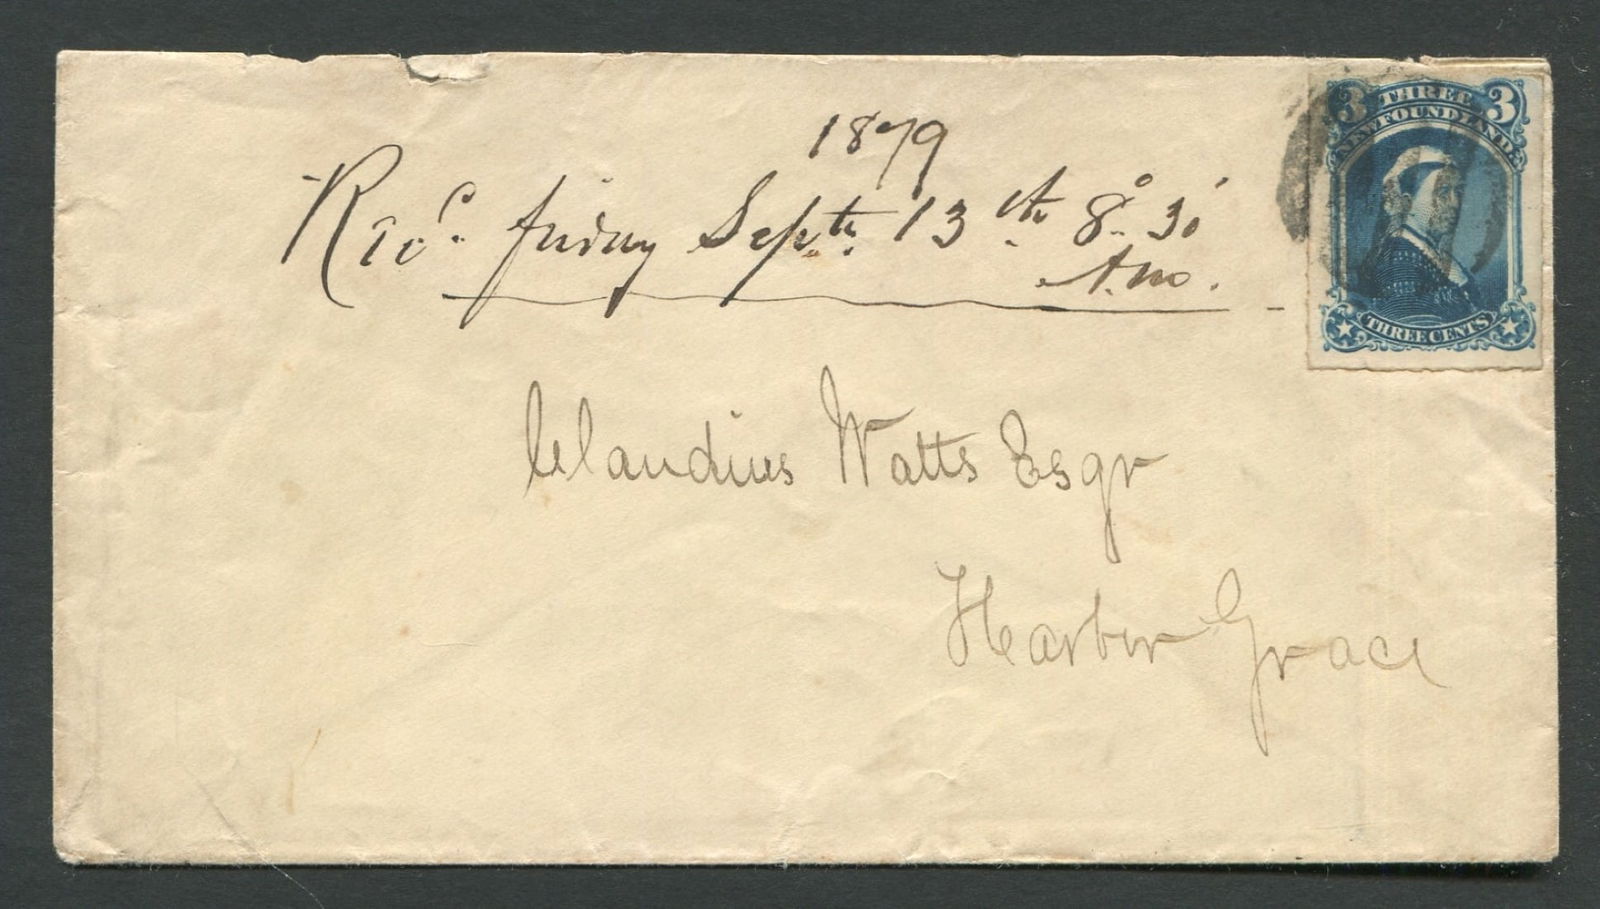 1879
Recd. friday Septr. 13th. 8° 30'
A.m.
3 THREE 3
NEWFOUNDLAND
THREE CENTS
Claudius Watts Esqr
Harbor Grace